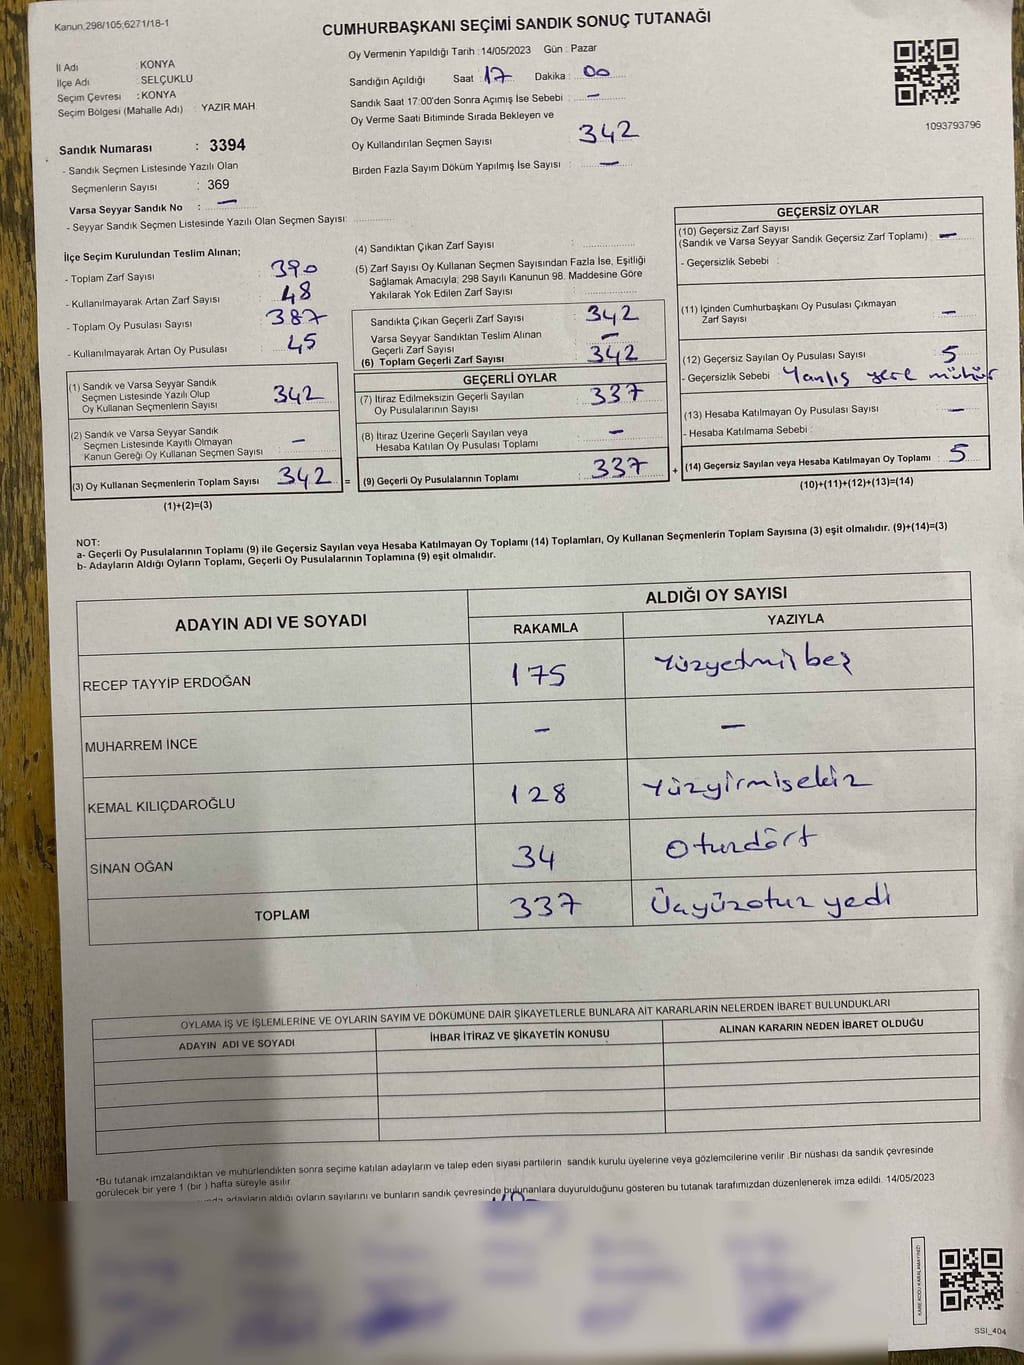 Kanun;298/105;6271/18-1
CUMHURBAŞKANI SEÇİMİ SANDIK SONUÇ TUTANAĞI
İl Adı : KONYA
İlçe Adı : SELÇUKLU
Seçim Çevresi : KONYA
Seçim Bölgesi (Mahalle Adı) YAZIR MAH.
Oy Vermenin Yapıldığı Tarih :14/05/2023 Gün : Pazar
Sandığın Açıldığı Saat : 17 Dakika : 00
Sandık Saat 17:00'den Sonra Açımış İse Sebebi : —
Oy Verme Saati Bitiminde Sırada Bekleyen ve
Oy Kullandırılan Seçmen Sayısı 342
Birden Fazla Sayım Döküm Yapılmış İse Sayısı : —
1093793796
Sandık Numarası : 3394
- Sandık Seçmen Listesinde Yazılı Olan
Seçmenlerin Sayısı : 369
Varsa Seyyar Sandık No : —
- Seyyar Sandık Seçmen Listesinde Yazılı Olan Seçmen Sayısı:
İlçe Seçim Kurulundan Teslim Alınan;
- Toplam Zarf Sayısı : 390
- Kullanılmayarak Artan Zarf Sayısı : 48
- Toplam Oy Pusulası Sayısı : 387
- Kullanılmayarak Artan Oy Pusulası : 45
(1) Sandık ve Varsa Seyyar Sandık
Seçmen Listesinde Yazılı Olup
Oy Kullanan Seçmenlerin Sayısı : 342
(2) Sandık ve Varsa Seyyar Sandık
Seçmen Listesinde Kayıtlı Olmayan
Kanun Gereği Oy Kullanan Seçmen Sayısı : —
(3) Oy Kullanan Seçmenlerin Toplam Sayısı 342 =
(1)+(2)=(3)
(4) Sandıktan Çıkan Zarf Sayısı :
(5) Zarf Sayısı Oy Kullanan Seçmen Sayısından Fazla İse, Eşitliği
Sağlamak Amacıyla; 298 Sayılı Kanunun 98. Maddesine Göre
Yakılarak Yok Edilen Zarf Sayısı :
Sandıkta Çıkan Geçerli Zarf Sayısı : 342
Varsa Seyyar Sandıktan Teslim Alınan
Geçerli Zarf Sayısı : —
(6) Toplam Geçerli Zarf Sayısı : 342
GEÇERLİ OYLAR
(7) İtiraz Edilmeksizin Geçerli Sayılan
Oy Pusulalarının Sayısı : 337
(8) İtiraz Üzerine Geçerli Sayılan veya
Hesaba Katılan Oy Pusulası Toplamı : —
(9) Geçerli Oy Pusulalarının Toplamı : 337 +
GEÇERSİZ OYLAR
(10) Geçersiz Zarf Sayısı
(Sandık ve Varsa Seyyar Sandık Geçersiz Zarf Toplamı) : —
- Geçersizlik Sebebi :
(11) İçinden Cumhurbaşkanı Oy Pusulası Çıkmayan
Zarf Sayısı : —
(12) Geçersiz Sayılan Oy Pusulası Sayısı : 5
- Geçersizlik Sebebi : Yanlış yere mühür
(13) Hesaba Katılmayan Oy Pusulası Sayısı : —
- Hesaba Katılmama Sebebi :
(14) Geçersiz Sayılan veya Hesaba Katılmayan Oy Toplamı : 5
(10)+(11)+(12)+(13)=(14)
NOT:
a- Geçerli Oy Pusulalarının Toplamı (9) ile Geçersiz Sayılan veya Hesaba Katılmayan Oy Toplamı (14) Toplamları, Oy Kullanan Seçmenlerin Toplam Sayısına (3) eşit olmalıdır. (9)+(14)=(3)
b- Adayların Aldığı Oyların Toplamı, Geçerli Oy Pusulalarının Toplamına (9) eşit olmalıdır.
ADAYIN ADI VE SOYADI
ALDIĞI OY SAYISI
RAKAMLA YAZIYLA
RECEP TAYYİP ERDOĞAN 175 Yüzyetmişbeş
MUHARREM İNCE — —
KEMAL KILIÇDAROĞLU 128 Yüzyirmisekiz
SİNAN OĞAN 34 Otuzdört
TOPLAM 337 Üçyüzotuz yedi
OYLAMA İŞ VE İŞLEMLERİNE VE OYLARIN SAYIM VE DÖKÜMÜNE DAİR ŞİKAYETLERLE BUNLARA AİT KARARLARIN NELERDEN İBARET BULUNDUKLARI
ADAYIN ADI VE SOYADI İHBAR İTİRAZ VE ŞİKAYETİN KONUSU ALINAN KARARIN NEDEN İBARET OLDUĞU
*Bu tutanak imzalandıktan ve mühürlendikten sonra seçime katılan adayların ve talep eden siyasi partilerin sandık kurulu üyelerine veya gözlemcilerine verilir .Bir nüshası da sandık çevresinde
görülecek bir yere 1 (bir ) hafta süreyle asılır.
adayların aldığı oyların sayılarını ve bunların sandık çevresinde bulunanlara duyurulduğunu gösteren bu tutanak tarafımızdan düzenlenerek imza edildi. 14/05/2023
KARE KODU KARALAMAYINIZ!
SSI_404